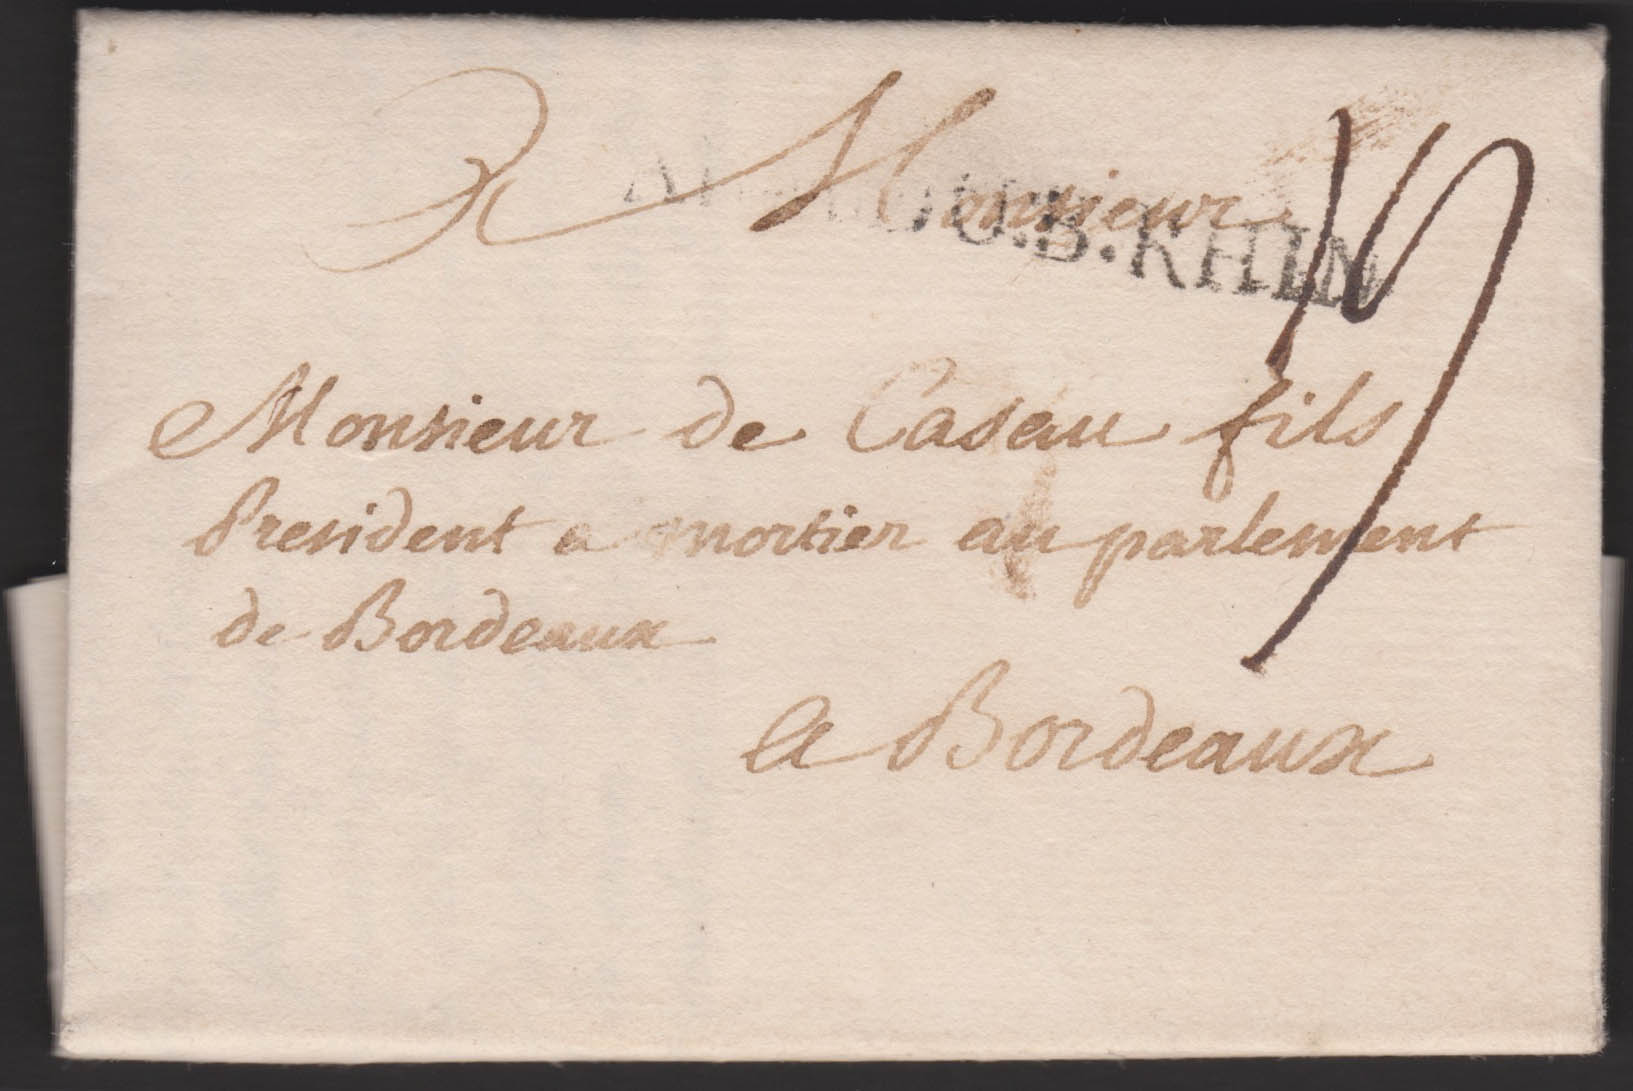 Monsieur
DU.B.RHIN
Monsieur de Caseau fils
President a mortier au parlement
de Bordeaux
a Bordeaux